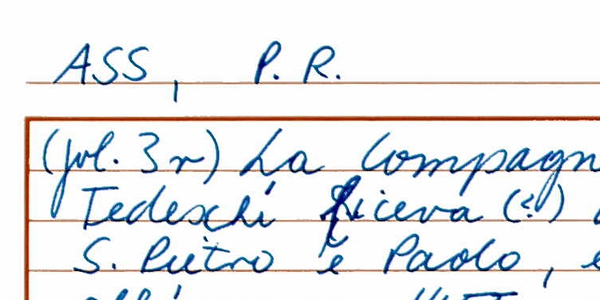 ASS, P. R.
(fol. 3r) La Compagn
Tedeschi riceva (?)
S. Pietro e Paolo, e